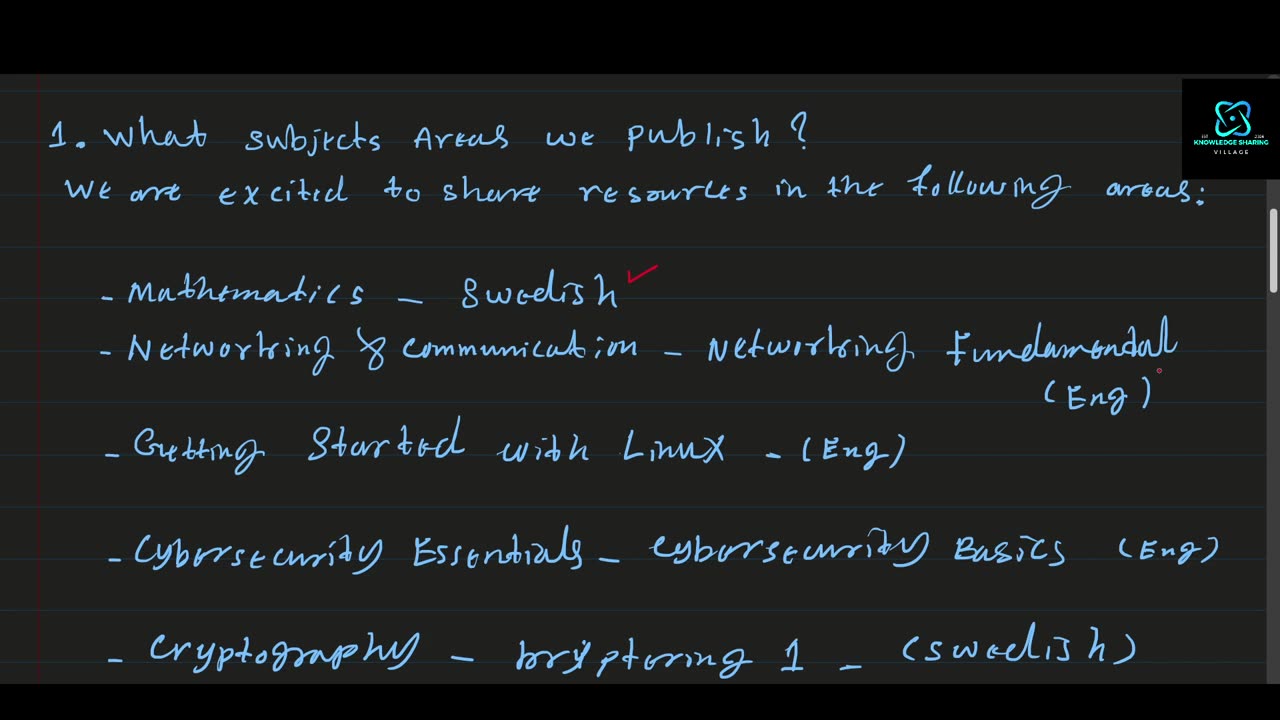 1. What subjects Areas we publish?
We are excited to share resources in the following areas:
- Mathematics - Swedish
- Networking & communication - Networking Fundamental
(Eng)
- Getting Started with Linux - (Eng)
- Cybersecurity Essentials - Cybersecurity Basics (Eng)
- Cryptography - kryptering 1 - (Swedish)
KNOWLEDGE SHARING
VILLAGE